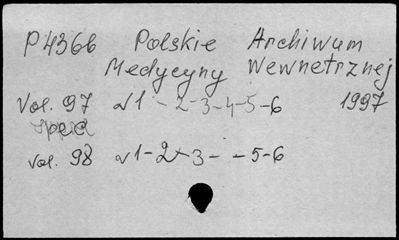 P4366 Polskie Archiwum
Medycyny Wewnetrznej
Vol. 97 √1-2-3-4-5-6 1997
Vol. 98 √1-2-3- -5-6